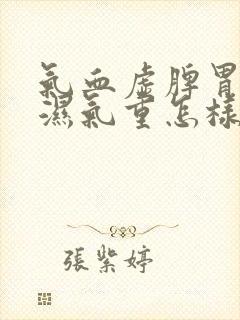 氣血虛脾胃
濕氣重怎樣
張紫婷